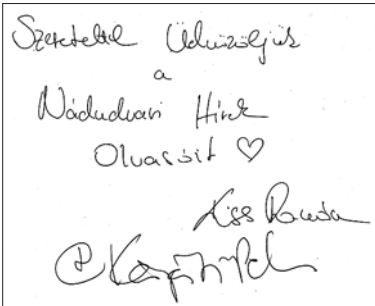 Szeretettel Üdvözöljük
a
Nádudvari Hírek
Olvasóit ♡
Kiss Ramóna